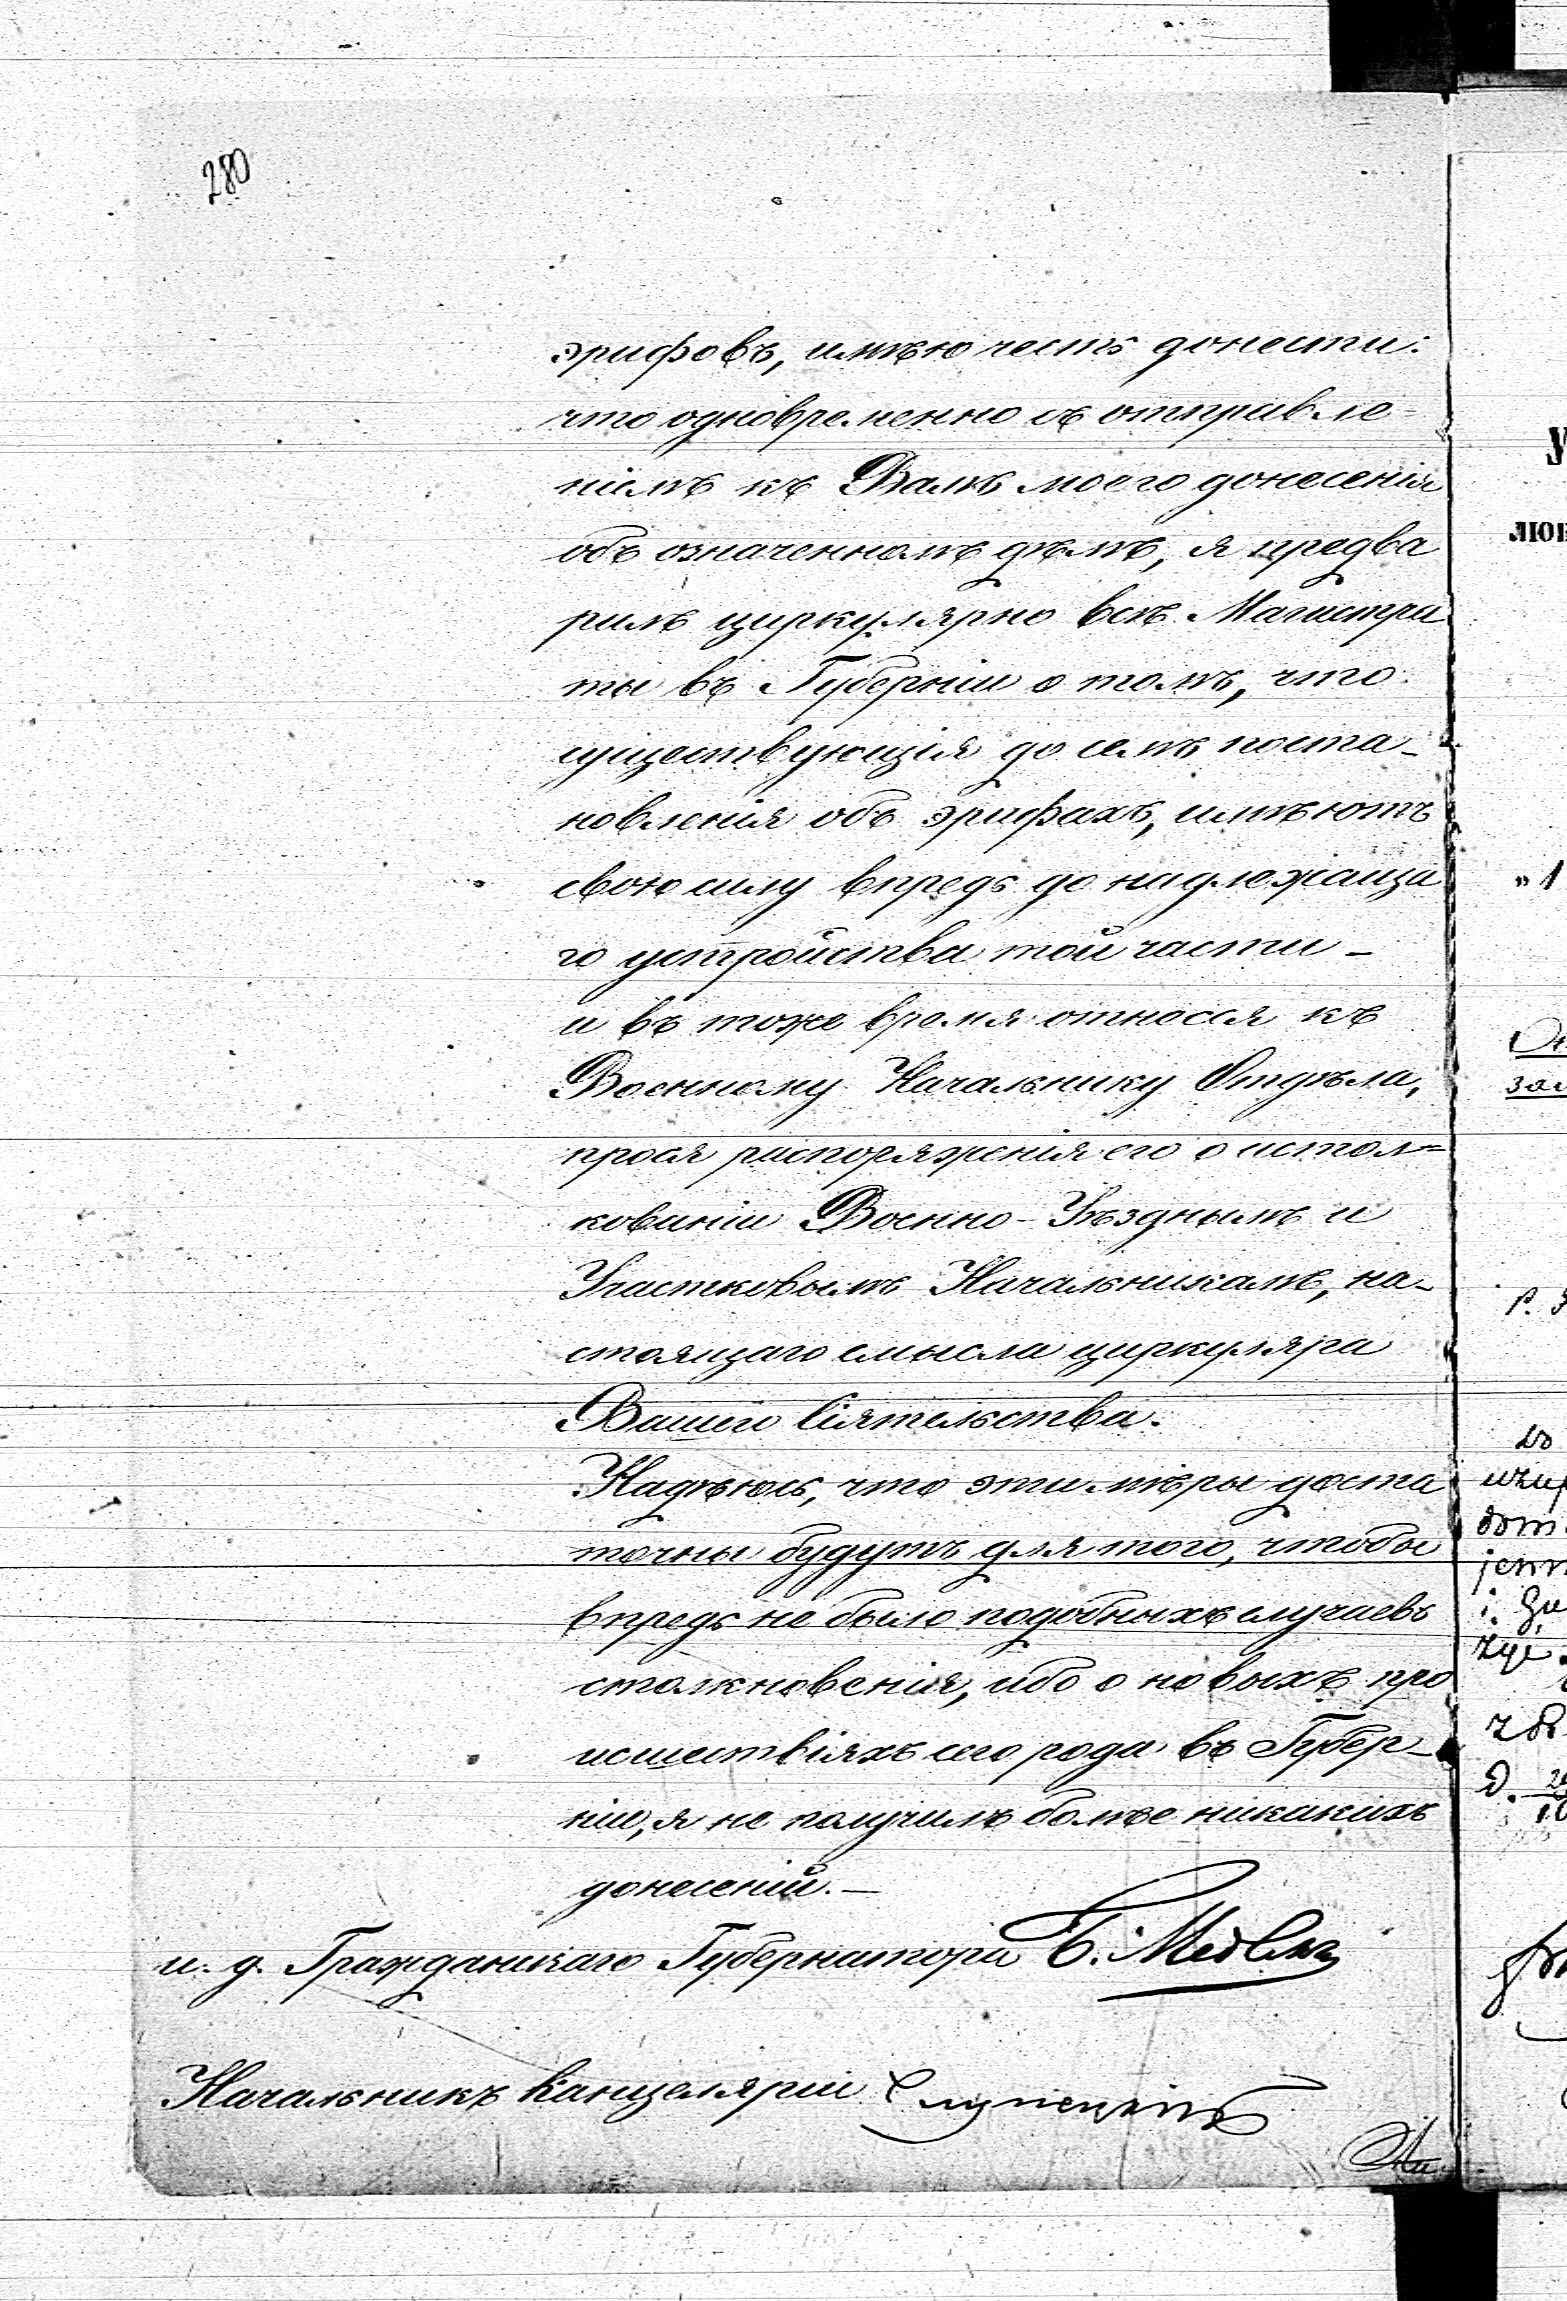 280
эрифовъ, имѣю честь донести:
что одновременно съ отправле-
ніемъ къ Вамъ моего донесенія
объ означенномъ дѣлѣ, я предва
рилъ циркулярно всѣ Магистра
ты въ Губерніи о томъ, что
существующія до селѣ поста-
новленія объ эрифахъ, имѣютъ
свою силу впредь до надлежаща
го устройства той части –
и въ тоже время отнесся къ
Военному Начальнику Отдѣла,
прося распоряженія его о истол=
кованіи Военно-Уѣзднымъ и
Участковымъ Начальникамъ, на-
стоящаго смысла циркуляра
Вашего Сіятельства.
Надѣюсь, что эти мѣры доста
точны будутъ для того, чтобы
впредь не было подобныхъ случаевъ
столкновенія, ибо о новыхъ про
исшествіяхъ сего рода въ Губер-
ніи, я не получилъ болѣе никакихъ
донесеній. –
и. д. Гражданскаго Губернатора
Начальникъ Канцеляріи